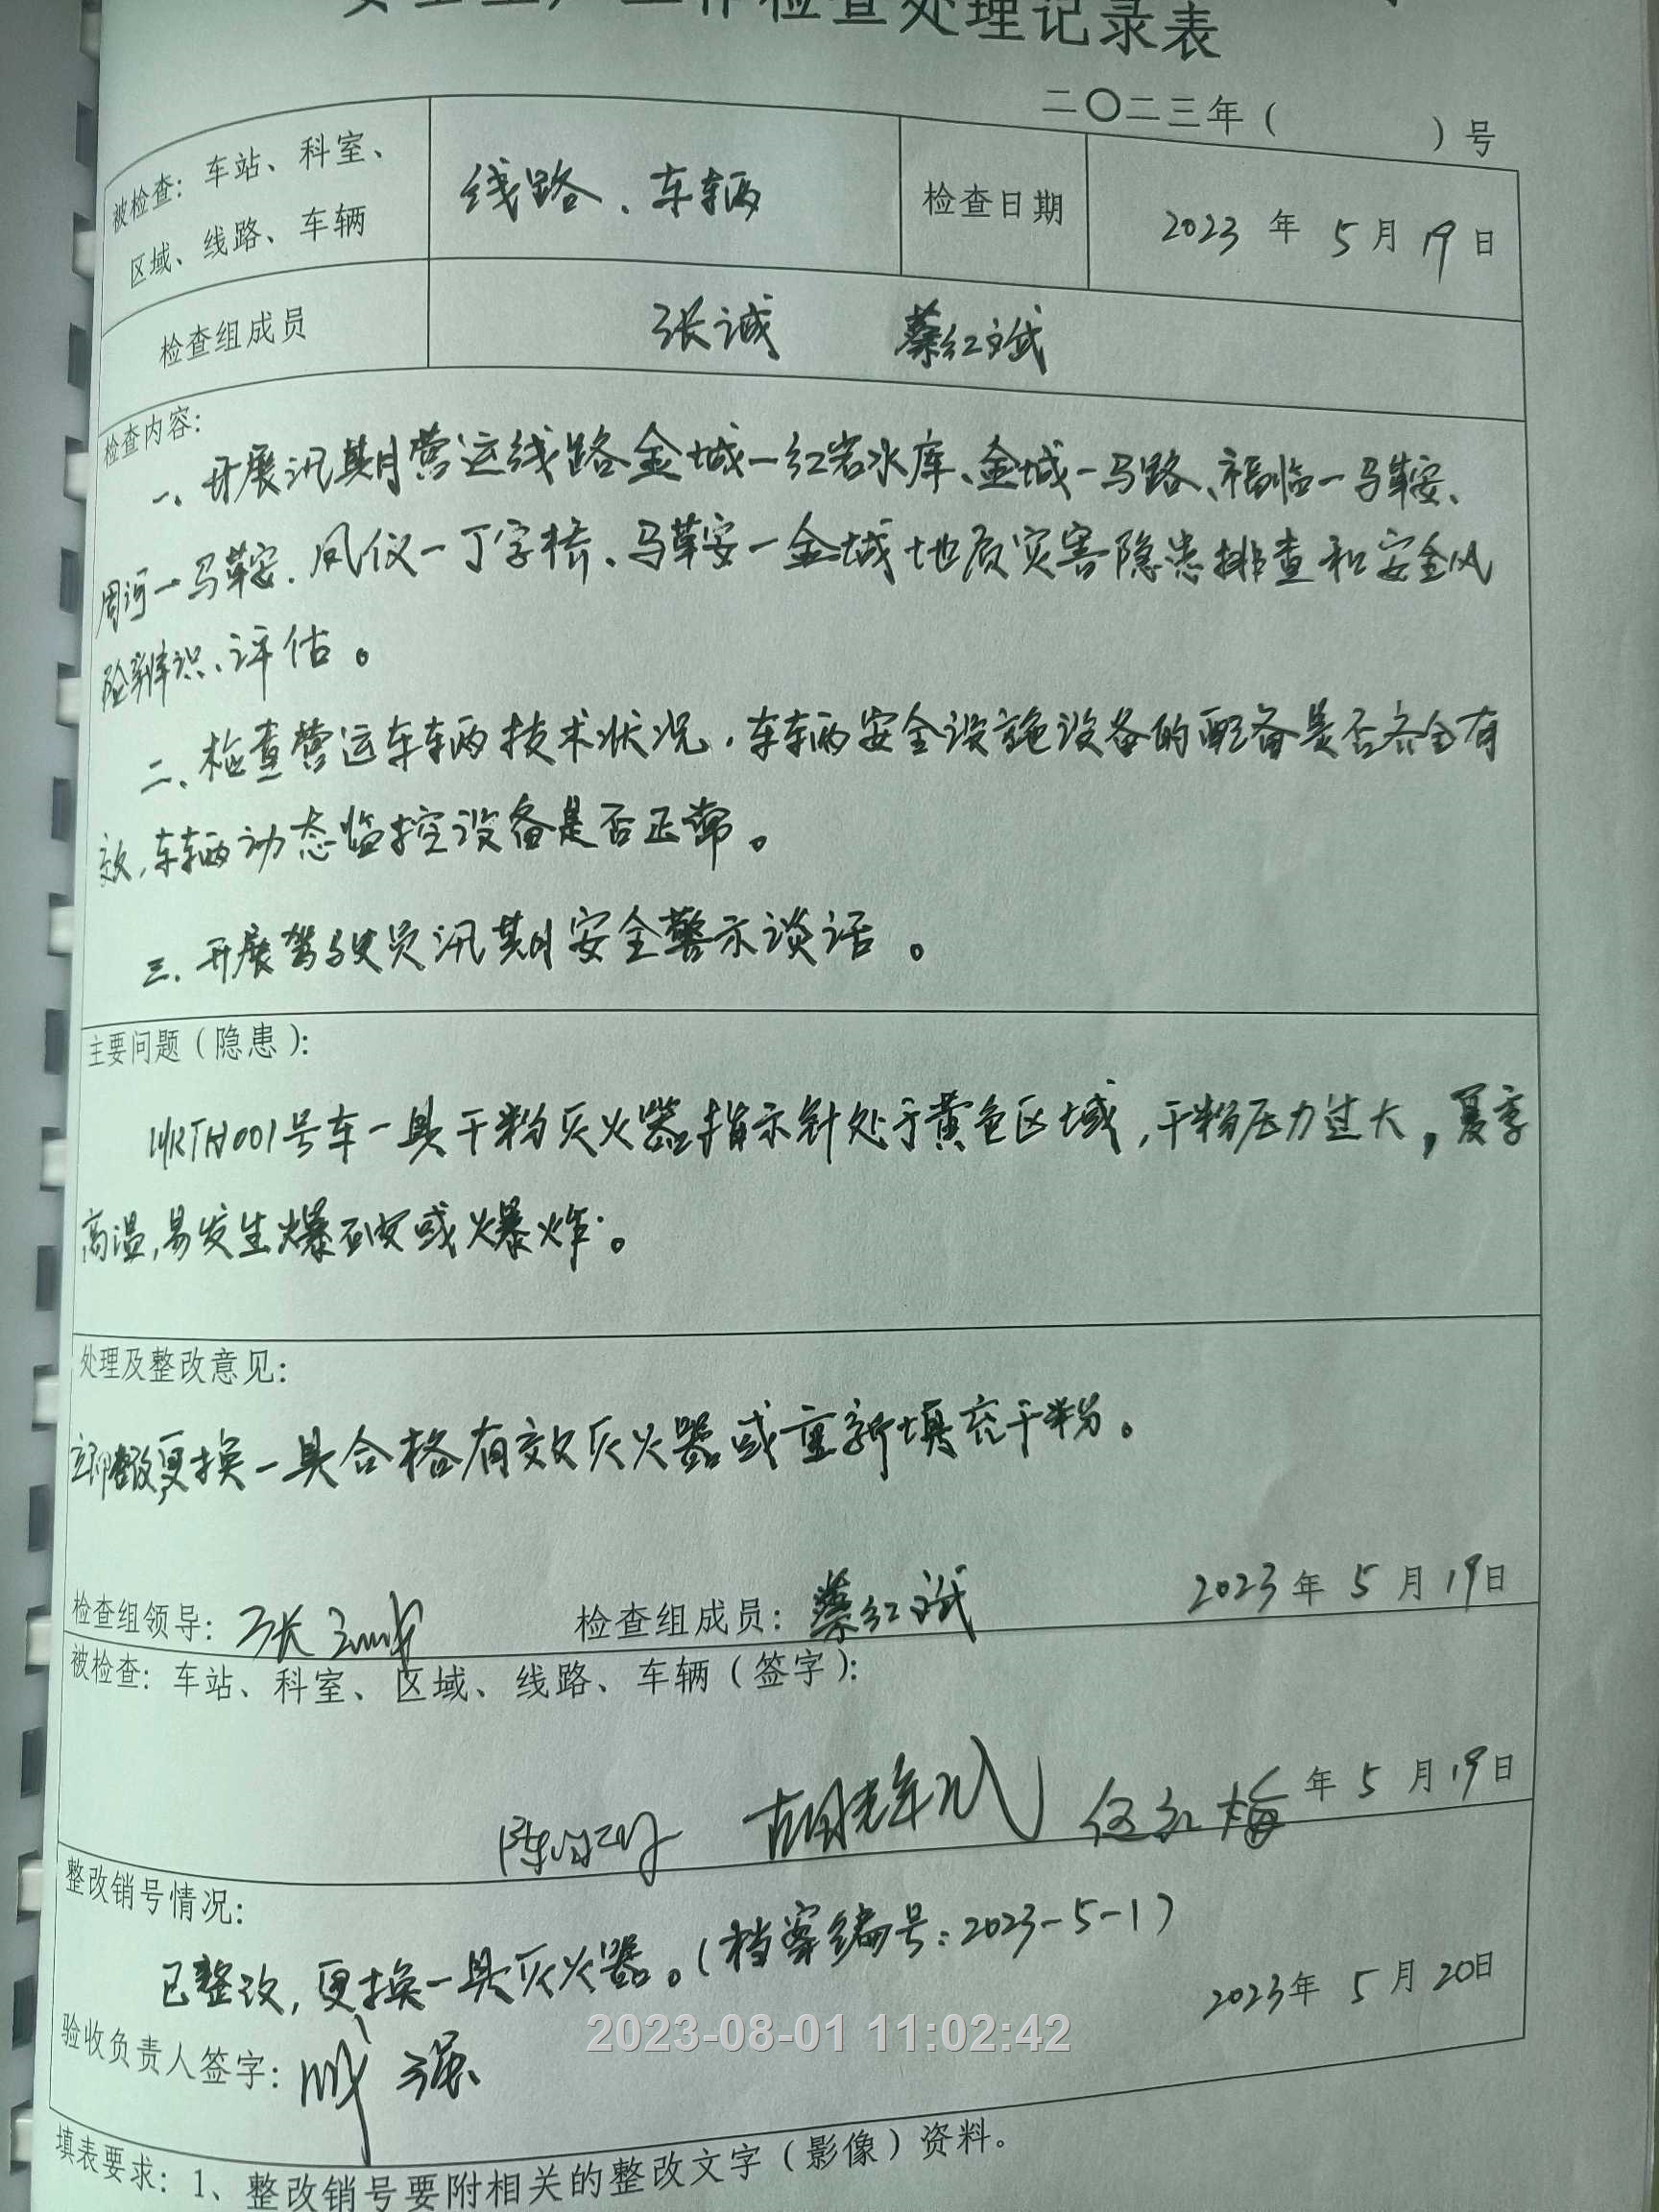 检查处理记录表
二〇二三年( )号
被检查:车站、科室、
区域、线路、车辆
线路、车辆
检查日期
2023 年 5 月 19 日
检查组成员
张诚 蔡红斌
检查内容:
一、开展汛期营运线路金城一红岩水库、金城一马路、福临一马鞍、
周河一马鞍、凤仪一丁字桥、马鞍一金城地质灾害隐患排查和安全风
险辨识、评估。
二、检查营运车辆技术状况,车辆安全设施设备的配备是否齐全有
效,车辆动态监控设备是否正常。
三、开展驾驶员汛期安全警示谈话。
主要问题(隐患):
001号车一具干粉灭火器指示针处于黄色区域,干粉压力过大,夏季
高温,易发生爆破或爆炸。
处理及整改意见:
立即整改,更换一具合格有效灭火器或重新填充干粉。
检查组领导:张 检查组成员:蔡红斌 2023年 5 月 19日
被检查:车站、科室、区域、线路、车辆(签字):
陈 胡 红梅 年 5 月 19日
整改销号情况:
已整改,更换一具灭火器。(档案编号:2023-5-1)
2023年 5 月 20日
验收负责人签字: 强
2023-08-01 11:02:42
填表要求:1、整改销号要附相关的整改文字(影像)资料。